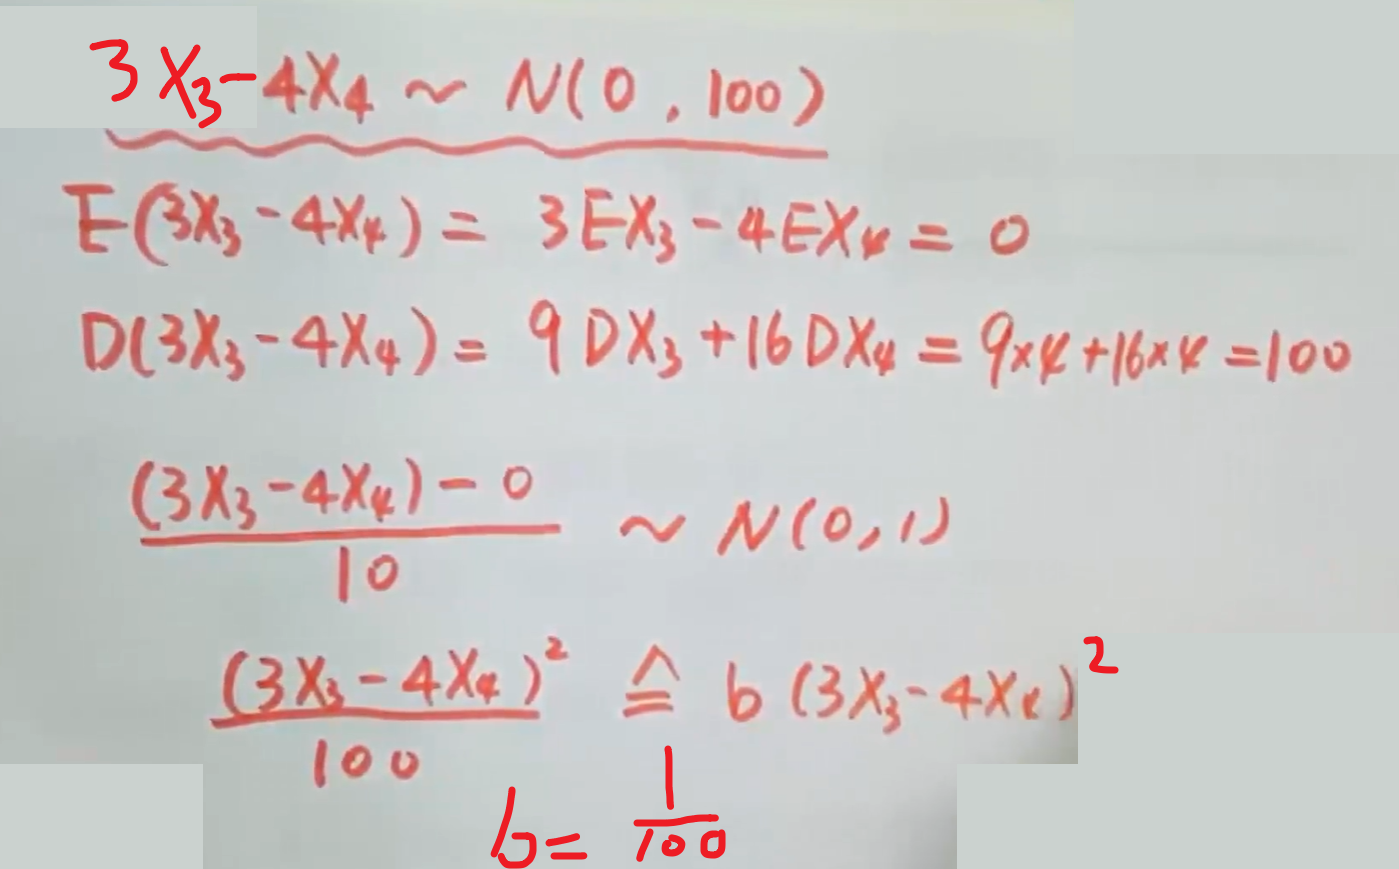 3X₃-4X₄ ~ N(0, 100)
E(3X₃-4X₄) = 3EX₃-4EX₄ = 0
D(3X₃-4X₄) = 9DX₃+16DX₄ = 9×4+16×4=100
(3X₃-4X₄)-0 / 10 ~ N(0,1)
(3X₃-4X₄)² / 100 ≙ b(3X₃-4X₄)²
b= 1/100